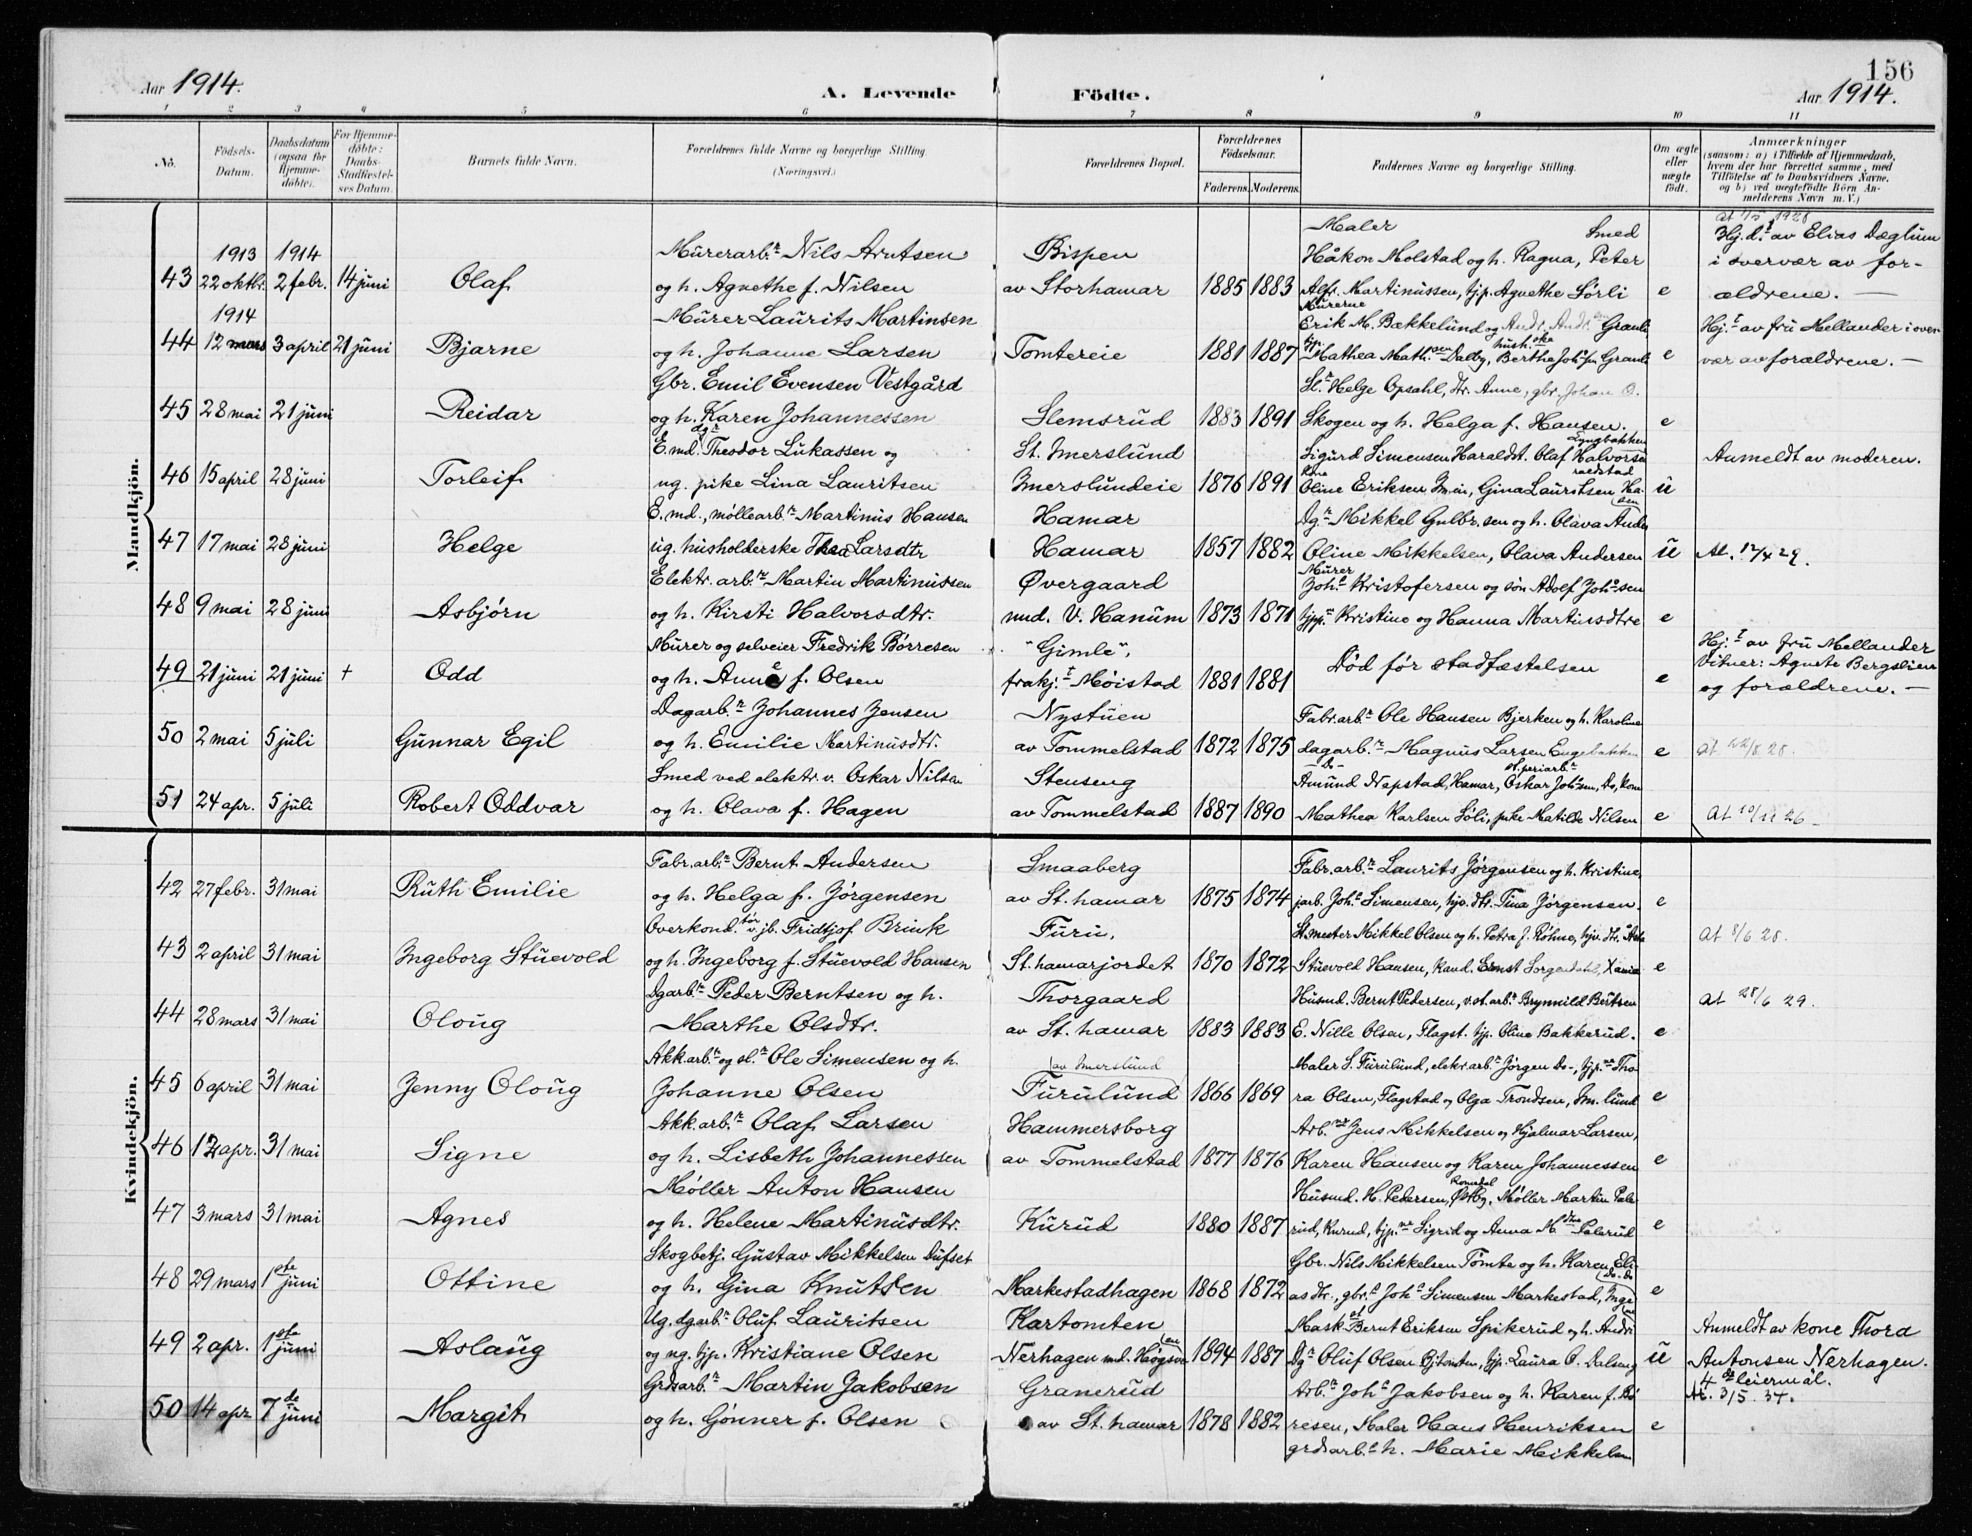 156
Aar 1914. A. Levende Födte. Aar 1914.
1 2 3 4 5 6 7 8 9 10 11
No. Födsels-Datum. Daabsdatum (ogsaa for Hjemme-döbte). For Hjemme-döbte: Daabs-Stadfæstel-ses Datum. Barnets fulde Navn. Forældrenes fulde Navne og borgerlige Stilling. (Næringsvei.) Forældrenes Bopæl. Forældrenes Födselsaar. Faderens. Moderens. Faddernes Navne og borgerlige Stilling. Om ægte eller uægte födt. Anmærkninger (saasom: a) i Tilfælde af Hjemmedaab, hvem der har forrettet samme, med Tilföielse af to Daabsvidners Navne, og b) ved uægtefödte Börn An-melderens Navn m. V.)
Mandkjön.
Maler Smed at 1928
1913 1914 Murerarb.r Nils Arntsen Bispen Håkon Molstad og h. Ragna, Peter Hj.d.t av Elias Dæglum
43 22 oktbr. 2 febr. 14 juni Olaf og h. Agnethe f. Nilsen av Storhamar 1885 1883 Alfr. Martinussen, tjp. Agnethe Sørli e i overvær av for-
ældrene. —
1914 Murer Laurits Martinsen Murerne Erik M. Bækkelund og Andr. Graul Hj.t av fru Mellander i over
44 12 mars 3 april 21 juni Bjarne og h. Johanne Larsen Tomtereie 1881 1887 tjp. Mathea Math.sen Dalby, Berthe e vær av forældrene. —
Gbr. Emil Evensen Vestgård Sl.r Helge Opsahl, dtr. Anne, gbr. Johan O.
45 28 mai 21 juni Reidar og h. Karen Johannessen Slemsrud 1883 1891 Skogen og h. Helga f. Hansen. e
E.md. dgr Theodor Lukassen og St. Imerslund Sigurd Simensen Haraldst. Olaf Halvorsen Lyngbakken Anmeldt av moderen.
46 15 april 28 juni Torleif ug. pike Lina Lauritsen Imerslundeie 1876 1891 Oline Eriksen, Gina Lauritsen u
E.md., møllearb.r Martinus Hansen Hamar Dg.r Mikkel Gulbr.sen og h. Olava Ander
47 17 mai 28 juni Helge ug. husholderske Thea Larsdtr Hamar 1857 1882 Oline Mikkelsen, Olava Andersen u At. 12/4 29.
Elektr. arb.r Martin Martinussen Øvergaard Murer Joh.s Kristofersen og søn Adolf Joh.sen
48 9 mai 28 juni Asbjørn og h. Kirsti Halvorsdtr. und. V. Hanum 1873 1871 tjp.r Kristine og Hanna Martinsdtre e
Murer og selveier Fredrik Børresen "Gimle", Hj.t av fru Mellander
49 21 juni 21 juni + Odd og h. Anna f. Olsen frakj.t Møistad 1881 1881 Død før stadfæstelsen e Vitner: Agnete Bergslien
og forældrene. —
Dagarb.r Johannes Jensen Nystuen Fabr.arb.r Ole Hansen Bjerken og h. Karoline
50 2 mai 5 juli Gunnar Egil og h. Emilie Martinusdtr. av Tommelstad 1872 1875 dagarb.r Magnus Larsen Engebakken e at 22/8 28.
Smed ved elektr. v. Oskar Nilsen Stenseng Amund Nepstad, Hamar, Oskar Joh.sen, Do, kone
51 24 apr. 5 juli Robert Oddvar og h. Olava f. Hagen av Tommelstad 1887 1890 Mathea Karlsen Soli, pike Matilde Nilsen e at 10/12 26
Kvindekjön.
Fabr.arb.r Bernt Andersen Smaaberg Fabr.arb.r Laurits Jørgensen og h. Kristine,
42 27 febr. 31 mai Ruth Emilie og h. Helga f. Jørgensen av St.hamar 1875 1874 jarb. Joh.s Simensen, hjv. dtr. Tina Jørgensen. e
Overkond. v. jb. Fridtjof Brink Furu, St.mester Mikkel Olsen og h. Petra f. Röhne, hjv. dtr. Asta
43 2 april 31 mai Ingeborg Stuevold og h. Ingeborg f. Stuevold Hansen St.hamarjordet 1870 1872 Stuevold Hansen, Kand. Ernst Sorgendahl, Xania e at 8/6 28.
Dgarb.r Peder Berntsen og h. Thorgaard Husmd. Bernt Pedersen, v.st.arb.r Brynnild Berntsen
44 28 mars 31 mai Oloug Marthe Olsdtr. av St. hamar 1883 1883 E. Nille Olsen, Flagst. tjp. Oline Bakkerud. e at 28/6 29.
Akk.arb.r og sl.r Ole Simensen og h. av Imerslund Maler S. Furulund, elektr.arb.r Jørgen Do-, tjp. Tho-
45 6 april 31 mai Jenny Oloug Johanne Olsen Furulund 1866 1869 ra Olsen, Flagstad og Olga Trondsen, Im.lund e
Akk.arb.r Olaf Larsen Hammersborg Arb.rne Jens Mikkelsen og Hjalmar Larsen,
46 12 apr. 31 mai Signe og h. Lisbeth Johannessen av Tommelstad 1877 1876 Karen Hansen og Karen Johannessen e
Møller Anton Hansen Husmd. H. Pedersen, Østby, Romedal Møller Martin Pale-
47 3 mars 31 mai Agnes og h. Helene Martinusdtr. Kurud 1880 1887 rud, Kurud, tjp.ne Sigrid og Anna M.dtre Palerud e
Skogbetj. Gustav Mikkelsen Dufset Gbr. Nils Mikkelsen Tomte og h. Karen Eli-
48 29 mars 1ste juni Ottine og h. Gina Knutsen Markestadhagen 1868 1872 as dtr., gbr.s Joh.s Simensen Markestad, Inge e
Ug. dgarb.r Oluf Lauritsen Kartomten Mask.st Bernt Eriksen Spikerud og h. Andri Anmeldt av kone Thora
49 2 apr. 1ste juni Aslaug og ug. tjp. Kristiane Olsen Nerhagen und. Høgsv 1894 1887 Dg.r Oluf Olsen, tjp. Laura O. Dalseng u Antonsen Nerhagen.
4de leiermål.
Grdsarb.r Martin Jakobsen Granerud Arb.r Joh.s Jakobsen og h. Karen f. Bö At. 3/5. 34.
50 14 apr 7de juni Margit og h. Gønner f. Olsen av St. hamar 1878 1882 resen, Maler Hans Henriksen e
grdsarb.s h. Marie Mikkelsen